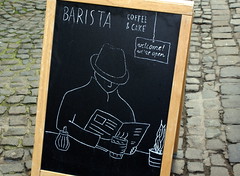 BARISTA
COFFEE
& CAKE
welcome!
we're open